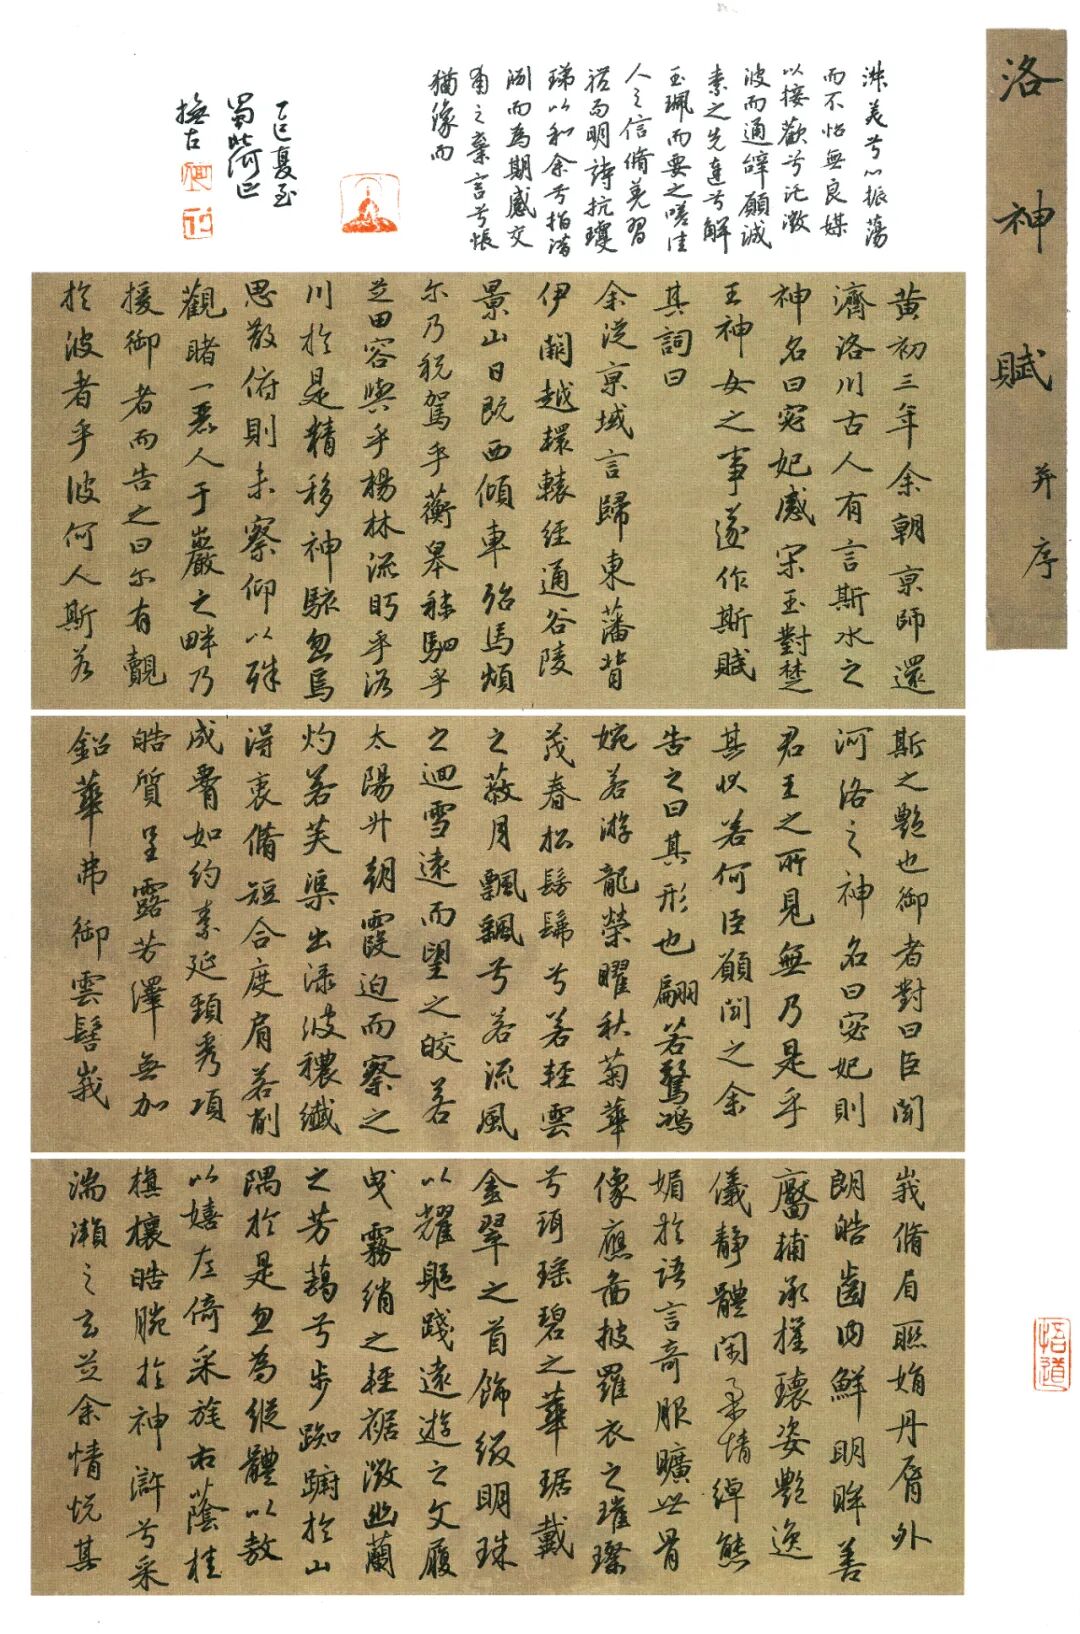 洛神賦并序
黃初三年余朝京師還
濟洛川古人有言斯水之
神名曰宓妃感宋玉對楚
王神女之事遂作斯賦
其詞曰
余從京域言歸東藩背
伊闕越轘轅經通谷陵
景山日既西傾車殆馬煩
尔乃稅駕乎蘅皋秣駟乎
芝田容與乎楊林流眄乎洛
川於是精移神駭忽焉
思散俯則未察仰以殊
觀睹一麗人于巖之畔乃
援御者而告之曰尔有觀
於波者乎彼何人斯若
斯之艷也御者對曰臣聞
河洛之神名曰宓妃則
君王之所見無乃是乎
其狀若何臣願聞之余
告之曰其形也翩若驚鴻
婉若游龍榮曜秋菊華
茂春松髣髴兮若輕雲
之蔽月飄飖兮若流風
之迴雪遠而望之皎若
太陽升朝霞迫而察之
灼若芙蕖出淥波穠纖
得衷脩短合度肩若削
成腰如約素延頸秀項
皓質呈露芳澤無加
鉛華弗御雲髻峩
峩脩眉聯娟丹脣外
朗皓齒內鮮明眸善
靨輔承權瓌姿艷逸
儀靜體閑柔情綽態
媚於語言奇服曠世骨
像應圖披羅衣之璀璨
兮珥瑤碧之華琚戴
金翠之首飾綴明珠
以耀軀踐遠遊之文履
曳霧綃之輕裾微幽蘭
之芳藹兮步踟躕於山
隅於是忽焉縱體以敖
以嬉左倚采旄右蔭桂
旗攘皓腕於神滸兮采
湍瀨之玄芝余情悅其
淑美兮心振蕩
而不怡無良媒
以接歡兮託微
波而通辭願誠
素之先達兮解
玉珮而要之嗟佳
人之信脩羌習
禮而明詩抗瓊
珶以和余兮指潛
淵而為期感交
甫之棄言兮悵
猶豫而
乙巳夏至
撫古
悟道